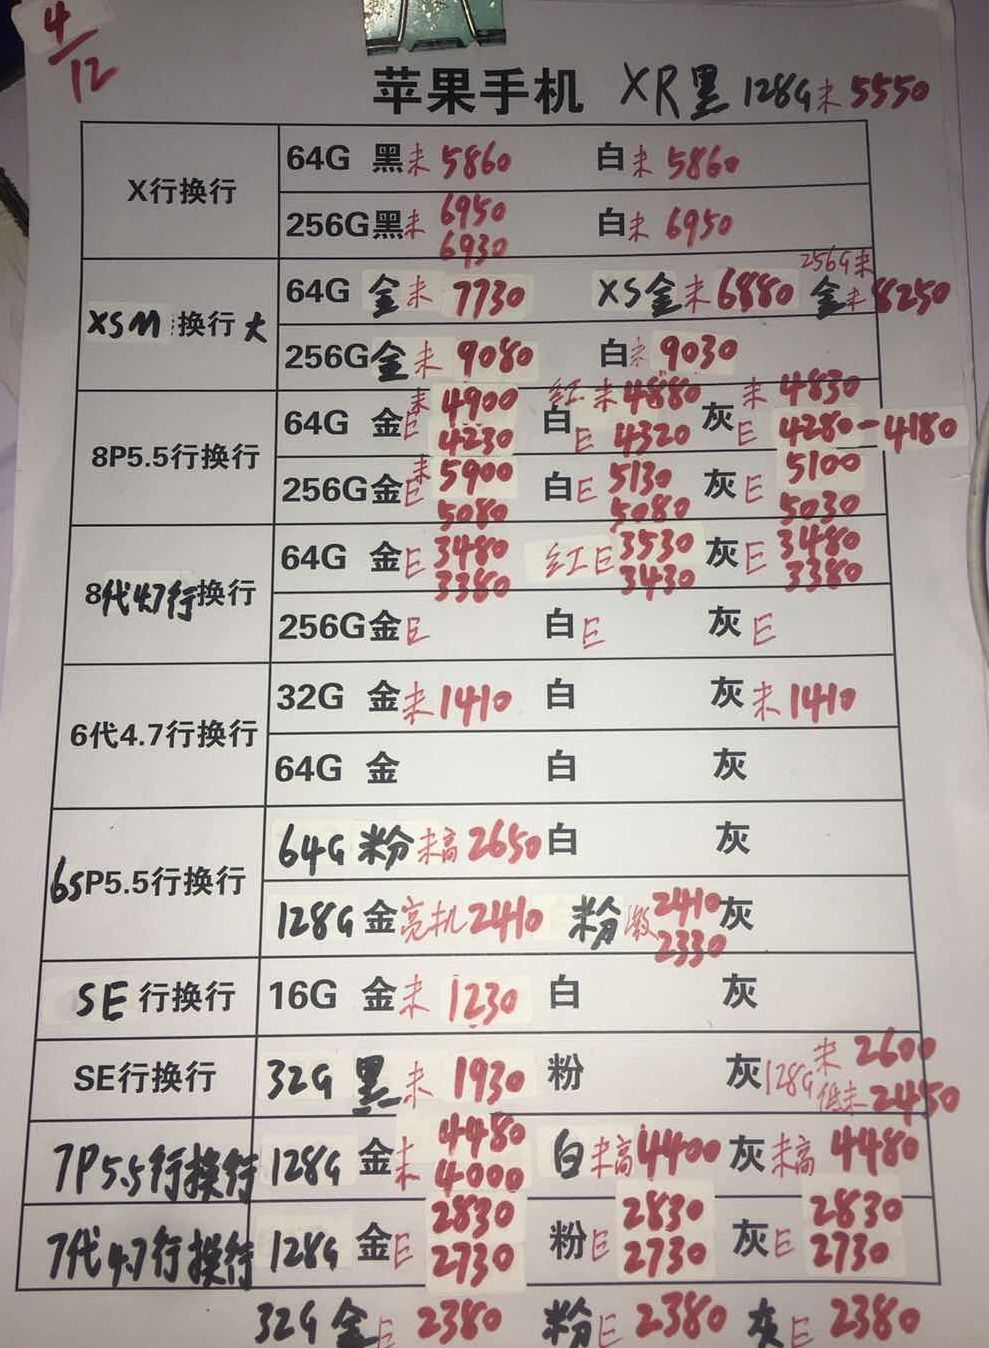 4/12
苹果手机 XR黑 128G未 5550
X行换行
64G 黑未 5860 白未 5860
256G黑未 6950 6930 白未 6950
XSM 换行大
64G 金未 7730 XS金未 6880 256G未 金未 8250
256G金未 9080 白未 9030
8P5.5行换行
64G 金 未 4900 E 4230 白 红未 4880 E 4320 灰 未 4830 E 4280-4180
256G金 未 5900 E 5080 白E 5130 5080 灰E 5100 5030
8代4.7行换行
64G 金E 3480 3380 红E 3530 3430 灰E 3480 3380
256G金E 白E 灰E
6代4.7行换行
32G 金未1410 白 灰未1410
64G 金 白 灰
6SP5.5行换行
64G 粉未高2650 白 灰
128G 金亮机2410 粉激2410 2330 灰
SE 行换行
16G 金未 1230 白 灰
SE行换行
32G 黑未 1930 粉 灰 128G 未 2600 低未 2450
7P5.5行换行
128G 金未 4480 4000 白未高4400 灰未高 4480
7代4.7行换行
128G 金E 2830 2730 粉E 2830 2730 灰E 2830 2730
32G 金E 2380 粉E 2380 灰E 2380